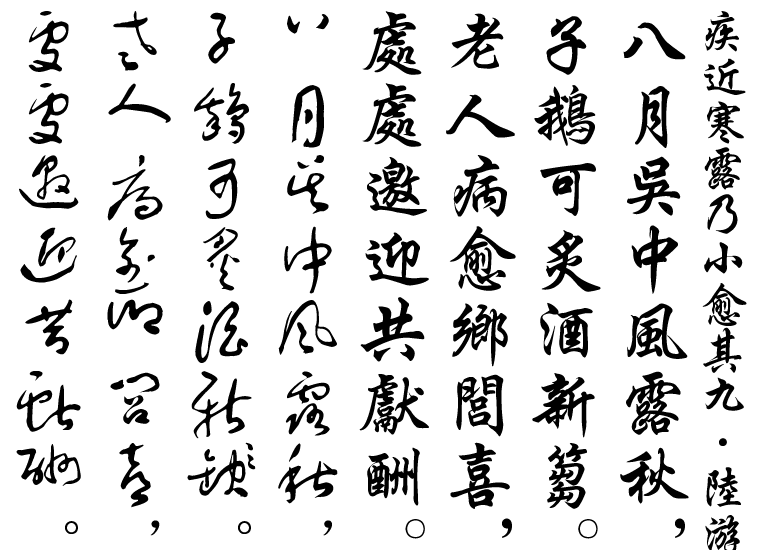 疾近寒露乃小愈其九·陸游
八月吳中風露秋，
子鵝可炙酒新篘。
老人病愈鄉閭喜，
處處邀迎共獻酬。
八月吳中風露秋，
子鵝可炙酒新篘。
老人病愈鄉閭喜，
處處邀迎共獻酬。